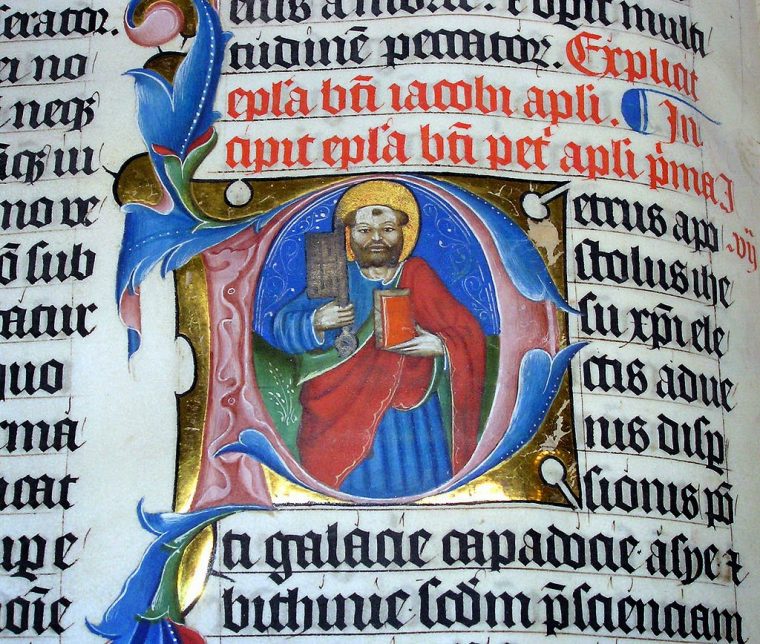 serator.
ei no
neqꝫ
mo ve
ō sub
catur
quo
rma
icat
upe
oīe
eius a morte. ⁊ opit multi
tudinē peccatoꝝ. Explicit
epl'a bt̄i iacobi apl̄i. In
cipit epl'a bt̄i pet' apl̄i p̄ma I
.vij
Petrus apo
stolus ihe
su xp̄i ele
ctis adue
nis disp
sionis pō
ti galacie capadocie. asye ⁊
bithinie. scd̄m p̄scienciam